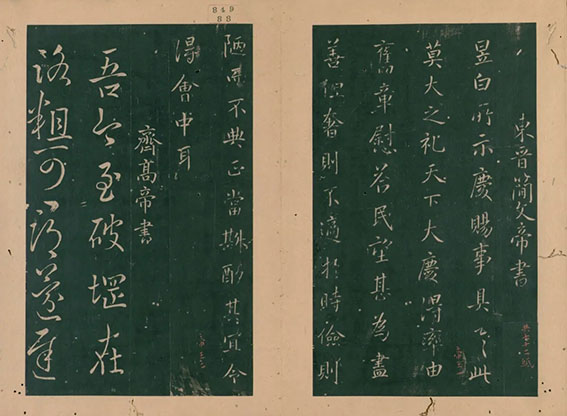 849
88
東晉簡文帝書
昱白所示慶賜事具之此
莫大之礼天下大慶得率由
舊章慰答民望甚為盡
善但奢則不適於時儉則
陋而不典正當斟酌其宜令
得會中耳
齊高帝書
吾今至破堽在
路粗可